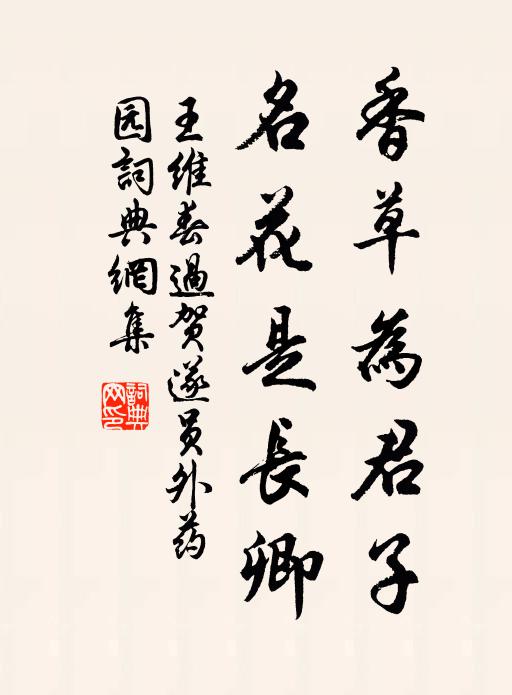 香草為君子
名花是長卿
王維春過贺遂员外药
园詞典網集
詞典網印